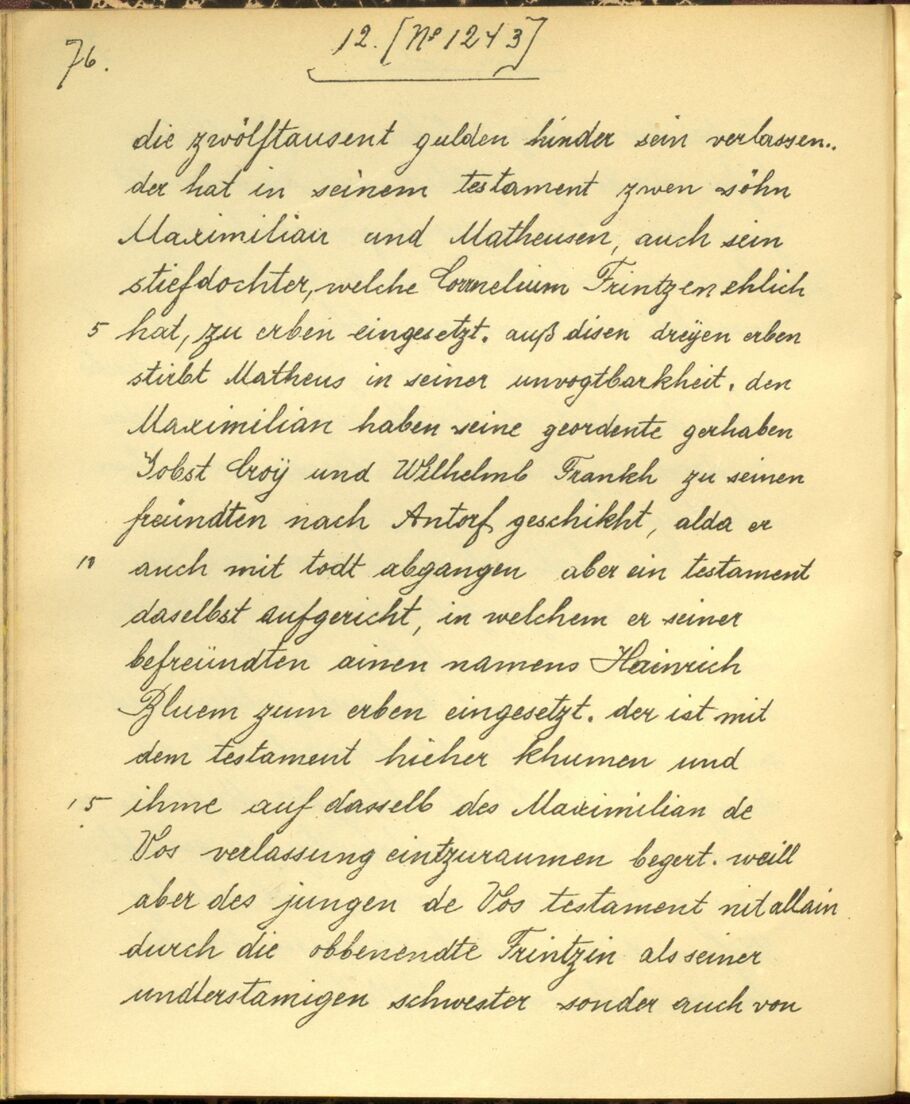 76.
12. [Nº 1243]
die zwölftausent gulden hinder sein verlassen..
der hat in seinem testament zwen söhn
Maximilian und Matheusen, auch sein
stiefdochter, welche Cornelium Frintzen ehlich
5 hat, zu erben eingesetzt. auß disen dreÿen erben
stirbt Matheus in seiner unvogtbarkheit. den
Maximilian haben seine geordente gerhaben
Jobst Croÿ und Wilhelmb Frankh zu seinen
freündten nach Antorf geschikht, alda er
10 auch mit todt abgangen aber ein testament
daselbst aufgericht, in welchem er seiner
befreündten ainen namens Hainrich
Bluem zum erben eingesetzt. der ist mit
dem testament hieher khumen und
15 ihme auf dasselb des Maximilian de
Vos verlassung eintzuraumen begert. weill
aber des jungen de Vos testament nit allain
durch die obbenendte Frintzin als seiner
understamigen schwester sonder auch von